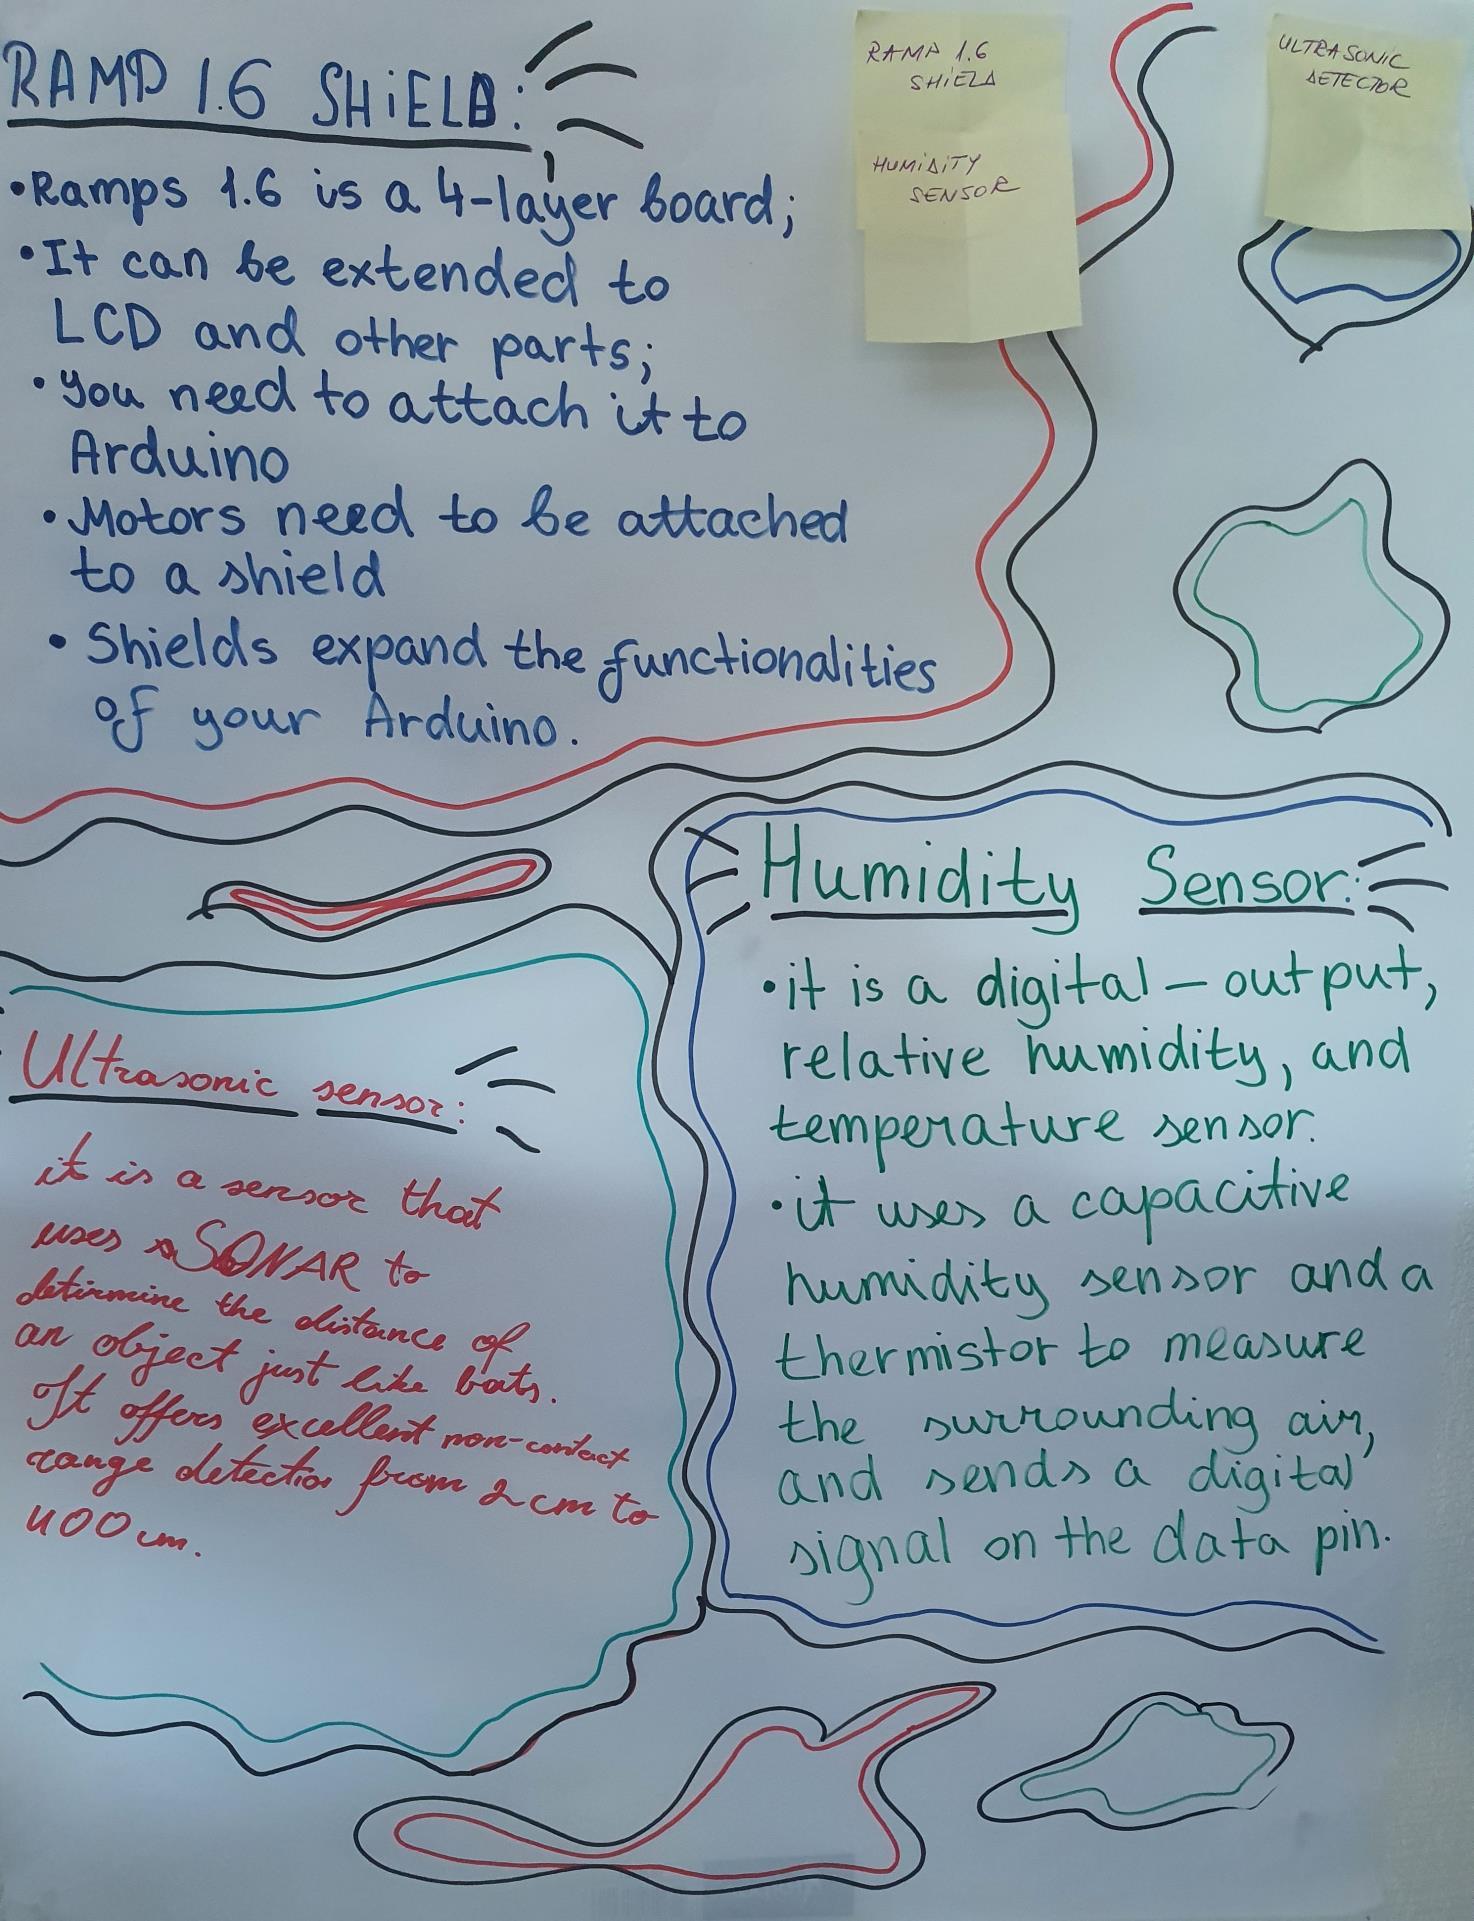 RAMP 1.6 SHiELD:
•Ramps 1.6 is a 4-layer board;
•It can be extended to
LCD and other parts;
•you need to attach it to
Arduino
•Motors need to be attached
to a shield
•Shields expand the functionalities
of your Arduino.
RAMP 1.6
SHiELD
HUMiDiTY
SENSOR
ULTRASONIC
DETECTOR
Humidity Sensor:
•it is a digital-output,
relative humidity, and
temperature sensor.
•it uses a capacitive
humidity sensor and a
thermistor to measure
the surrounding air,
and sends a digital
signal on the data pin.
Ultrasonic sensor:
it is a sensor that
uses SONAR to
detirmine the distance of
an object just like bats.
It offers excellent non-contact
range detection from 2 cm to
400 cm.